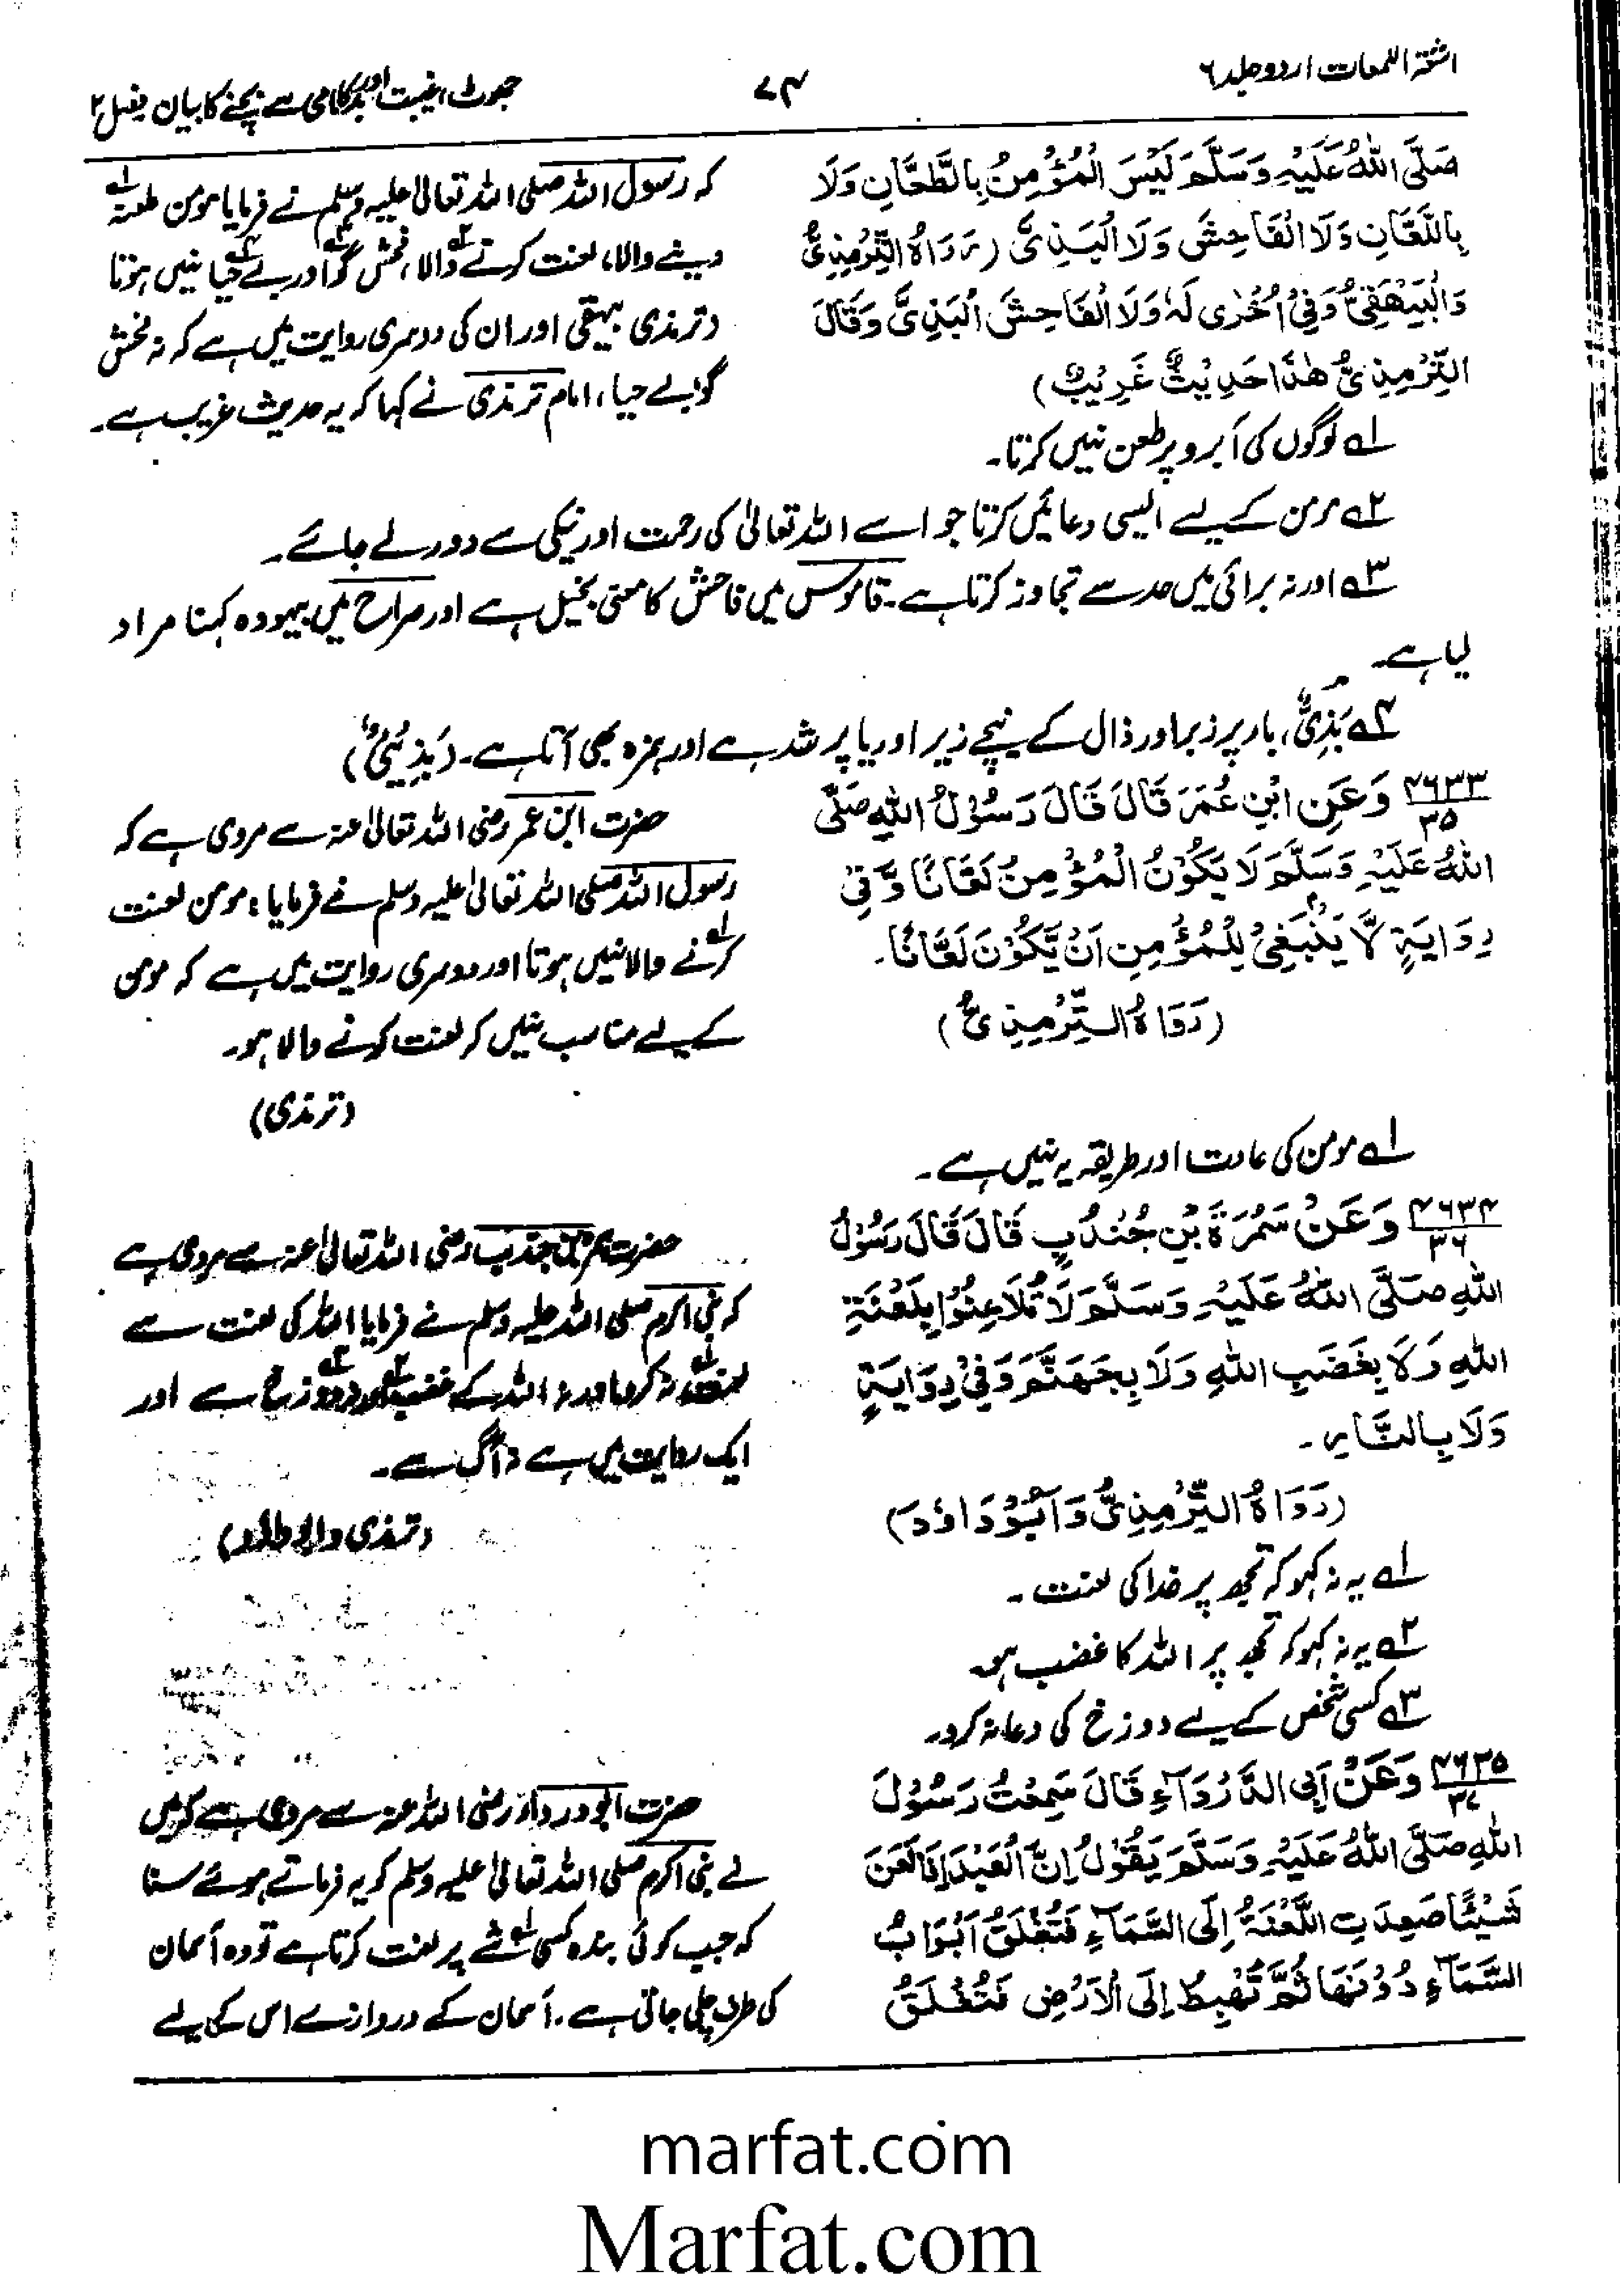 اشعۃ اللمعات اردو جلد ۶
۷۴
جھوٹ، غیبت اور بدکلامی سے بچنے کا بیان فصل ۲
صَلَّى اللهُ عَلَيْهِ وَسَلَّمَ لَيْسَ الْمُؤْمِنُ بِالطَّعَّانِ وَلَا
بِاللَّعَّانِ وَلَا الْفَاحِشِ وَلَا الْبَذِيِّ (رَوَاهُ التِّرْمِذِيُّ
وَالْبَيْهَقِيُّ وَفِيْ اُخْرٰى لَهٗ وَلَا الْفَاحِشِ الْبَذِيِّ وَقَالَ
التِّرْمِذِيُّ هٰذَا حَدِيْثٌ غَرِيْبٌ)
کہ رسول اللہ صلی اللہ تعالیٰ علیہ وسلم نے فرمایا مومن طعنہ ۱ے
دینے والا، لعنت کرنے ۲ے والا، فحش گو ۳ے اور بے حیا ۴ے نہیں ہوتا
(ترمذی بیہقی اور ان کی دوسری روایت میں ہے کہ نہ فحش
گو بے حیا، امام ترمذی نے کہا کہ یہ حدیث غریب ہے۔
۱ے لوگوں کی آبرو پر طعن نہیں کرتا۔
۲ے مومن کے لیے ایسی دعا نہیں کرتا جو اسے اللہ تعالیٰ کی رحمت اور نیکی سے دور لے جائے۔
۳ے اور نہ برائی میں حد سے تجاوز کرتا ہے۔ قاموس میں فاحش کا معنی بخیل ہے اور صراح میں بیہودہ کہنا مراد
لیا ہے۔
۴ے بَذِیٌّ، با پر زبر اور ذال کے نیچے زیر اور یا پر شد ہے اور ہمزہ بھی آتا ہے۔ (بَذِيْئٌ)
۴۶۳۳/۳۵ وَعَنِ ابْنِ عُمَرَ قَالَ قَالَ رَسُوْلُ اللهِ صَلَّى
اللهُ عَلَيْهِ وَسَلَّمَ لَا يَكُوْنُ الْمُؤْمِنُ لَعَّانًا وَّفِيْ
رِوَايَةٍ لَّا يَنْبَغِيْ لِلْمُؤْمِنِ اَنْ يَّكُوْنَ لَعَّانًا۔
(رَوَاهُ التِّرْمِذِيُّ)
حضرت ابن عمر رضی اللہ تعالیٰ عنہ سے مروی ہے کہ
رسول اللہ صلی اللہ تعالیٰ علیہ وسلم نے فرمایا: مومن لعنت
کرنے ۱ے والا نہیں ہوتا اور دوسری روایت میں ہے کہ مومن
کے لیے مناسب نہیں کہ لعنت کرنے والا ہو۔
(ترمذی)
۱ے مومن کی عادت اور طریقہ یہ نہیں ہے۔
۴۶۳۴/۳۶ وَعَنْ سَمُرَةَ بْنِ جُنْدُبٍ قَالَ قَالَ رَسُوْلُ
اللهِ صَلَّى اللهُ عَلَيْهِ وَسَلَّمَ لَا تَلَاعَنُوْا بِلَعْنَةِ
اللهِ وَلَا بِغَضَبِ اللهِ وَلَا بِجَهَنَّمَ وَفِيْ رِوَايَةٍ
وَلَا بِالنَّارِ۔
(رَوَاهُ التِّرْمِذِيُّ وَاَبُوْدَاوٗدَ)
حضرت سمرہ بن جندب رضی اللہ تعالیٰ عنہ سے مروی ہے
کہ نبی اکرم صلی اللہ علیہ وسلم نے فرمایا اللہ کی لعنت سے
لعنت ۱ے نہ کرو اور نہ اللہ کے غضب ۲ے اور نہ دوزخ ۳ے سے اور
ایک روایت میں ہے نہ آگ سے۔
(ترمذی و ابو داؤد)
۱ے یہ نہ کہو کہ تجھ پر خدا کی لعنت۔
۲ے یہ نہ کہو کہ تجھ پر اللہ کا غضب ہو۔
۳ے کسی شخص کے لیے دوزخ کی دعا نہ کرو۔
۴۶۳۵/۳۷ وَعَنْ اَبِي الدَّرْدَآءِ قَالَ سَمِعْتُ رَسُوْلَ
اللهِ صَلَّى اللهُ عَلَيْهِ وَسَلَّمَ يَقُوْلُ اِنَّ الْعَبْدَ اِذَا لَعَنَ
شَيْئًا صَعِدَتِ اللَّعْنَةُ اِلَى السَّمَآءِ فَتُغْلَقُ اَبْوَابُ
السَّمَآءِ دُوْنَهَا ثُمَّ تَهْبِطُ اِلَى الْاَرْضِ فَتُغْلَقُ
حضرت ابو درداء رضی اللہ عنہ سے مروی ہے کہ میں
نے نبی اکرم صلی اللہ تعالیٰ علیہ وسلم کو یہ فرماتے ہوئے سنا
کہ جب کوئی بندہ کسی ۱ے شے پر لعنت کرتا ہے تو وہ آسمان
کی طرف چلی جاتی ہے۔ آسمان کے دروازے اس کے لیے
marfat.com
Marfat.com